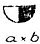 a × b